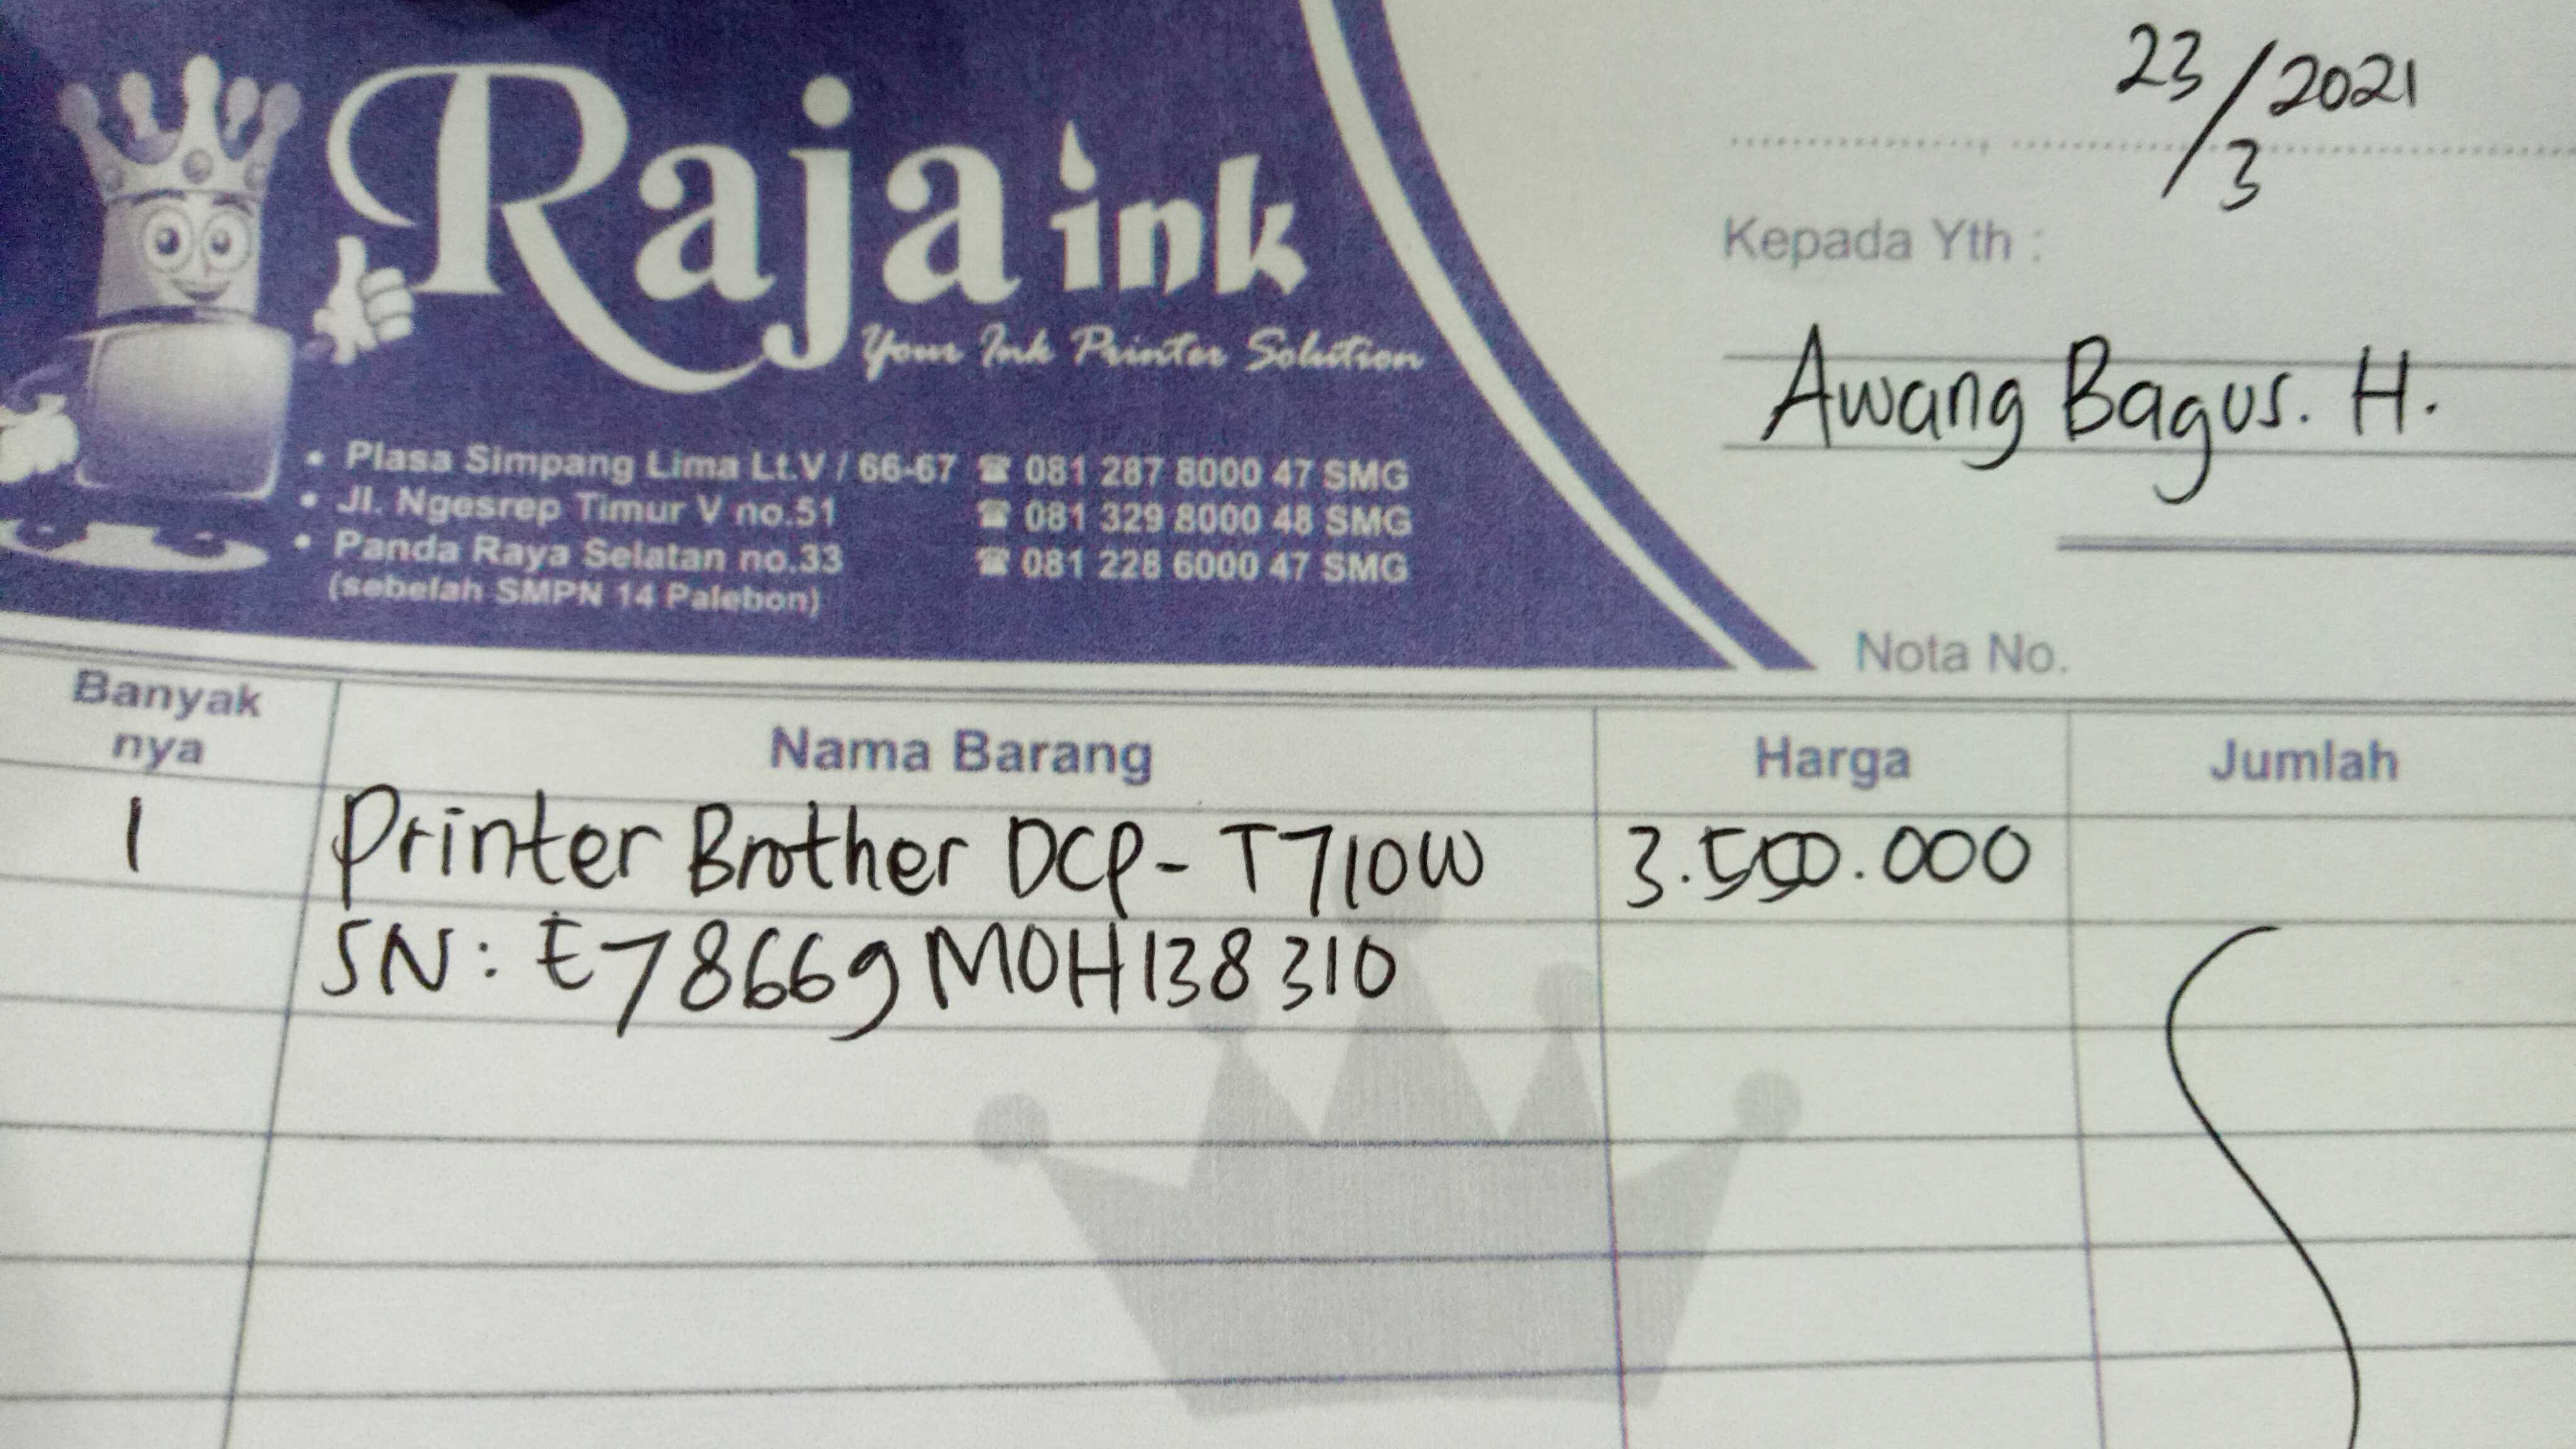 Raja ink
Your Ink Printer Solution
• Plasa Simpang Lima Lt.V / 66-67 ☎ 081 287 8000 47 SMG
• Jl. Ngesrep Timur V no.51 ☎ 081 329 8000 48 SMG
• Panda Raya Selatan no.33 ☎ 081 228 6000 47 SMG
(sebelah SMPN 14 Palebon)
23/3 2021
Kepada Yth :
Awang Bagus. H.
Nota No.
Banyak
nya
Nama Barang
Harga
Jumlah
1 Printer Brother DCP-T710W 3.550.000
SN: E78669M0H138310